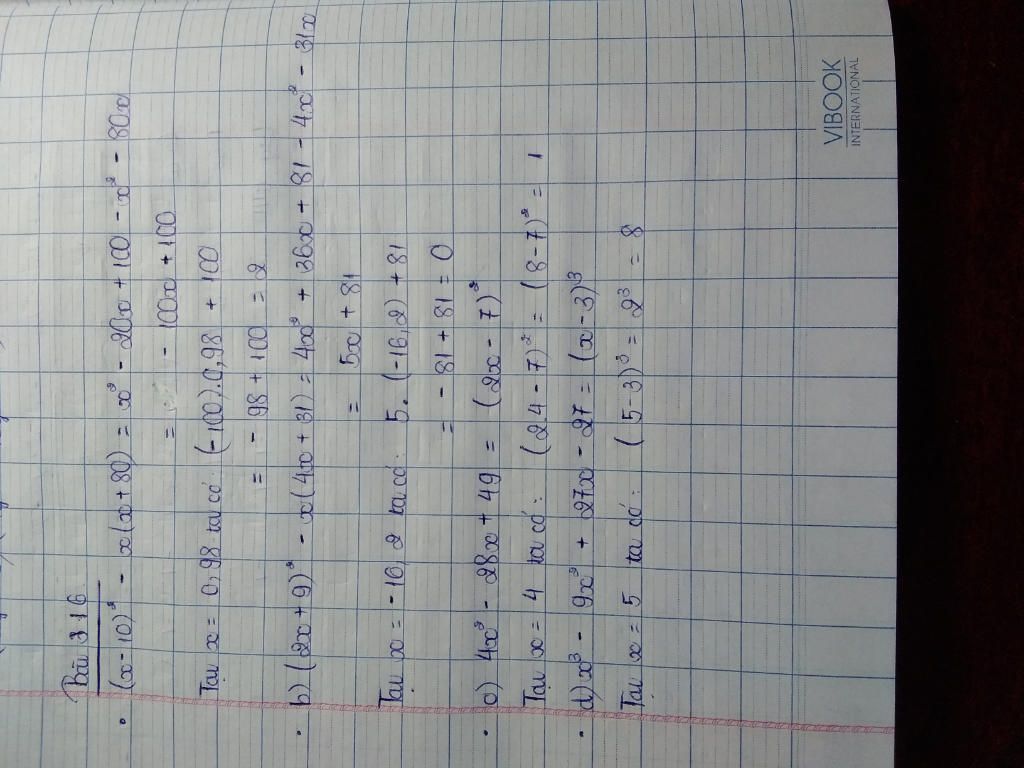 Bài 316
(x - 10)² - x(x + 80) = x² - 20x + 100 - x² - 80x
= - 100x + 100
Tại x = 0,98 ta có: (-100).0,98 + 100
= - 98 + 100 = 2
b) (2x + 9)² - x(4x + 31) = 4x² + 36x + 81 - 4x² - 31x
= 5x + 81
Tại x = -16,2 ta có: 5.(-16,2) + 81
= - 81 + 81 = 0
c) 4x² - 28x + 49 = (2x - 7)²
Tại x = 4 ta có: (24 - 7)² = (8 - 7)² = 1
d) x³ - 9x² + 27x - 27 = (x - 3)³
Tại x = 5 ta có: (5 - 3)³ = 2³ = 8
VIBOOK
INTERNATIONAL